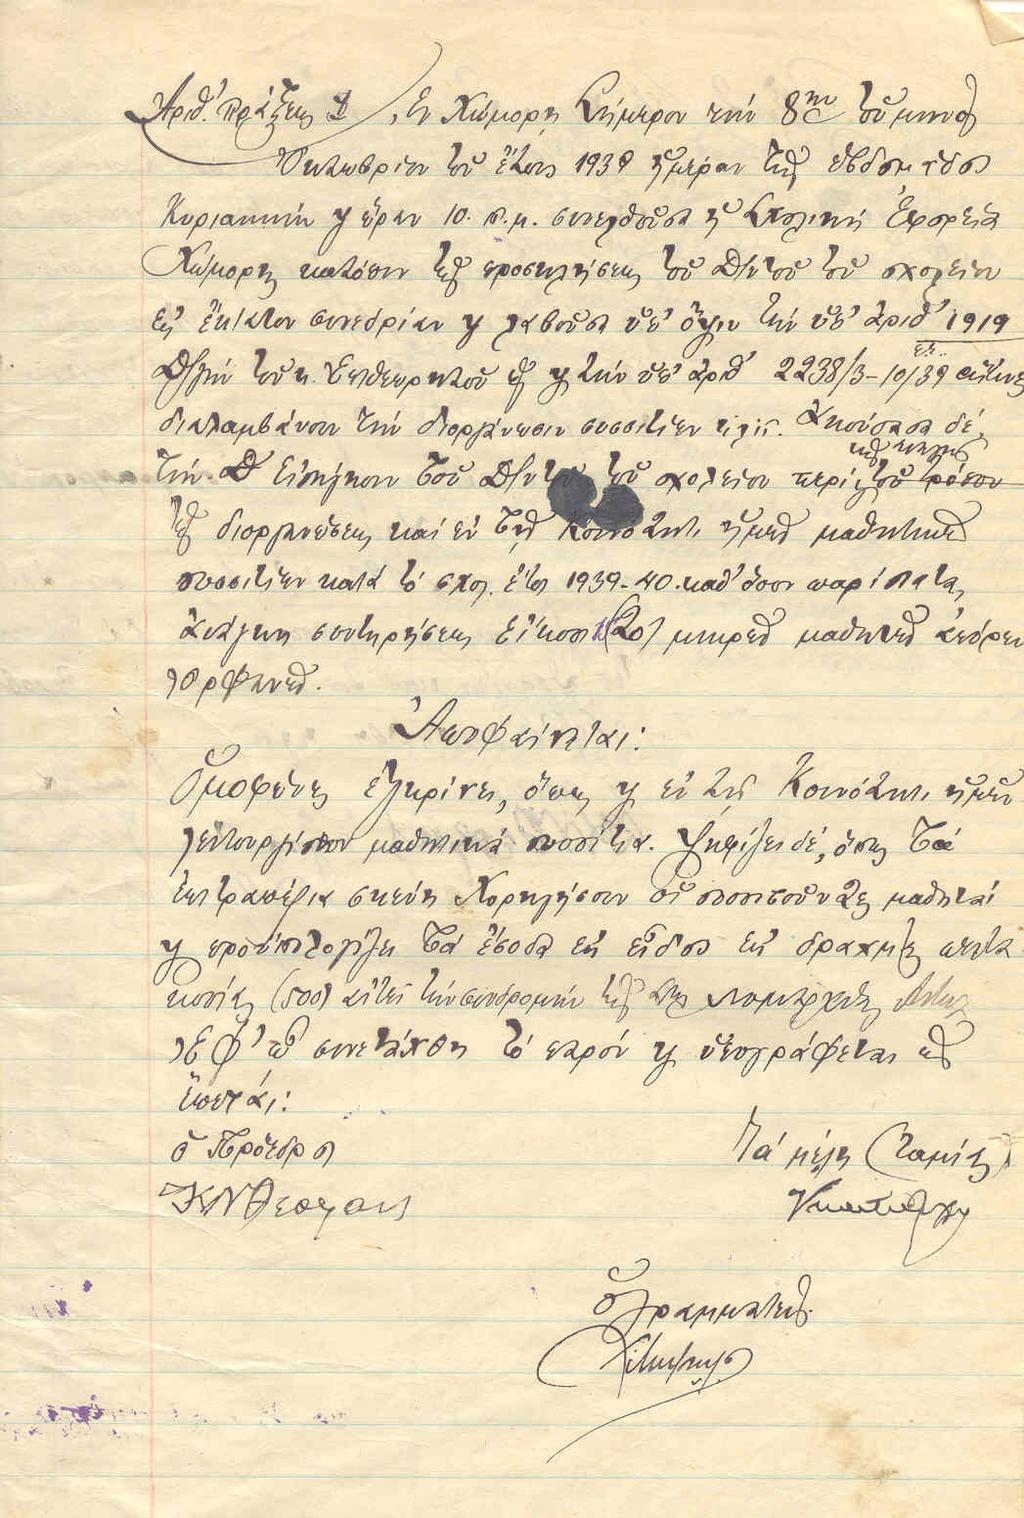 Ἀριθ. πράξεως , Ἐν Χώμορῃ Σήμερον τήν 8ην τοῦ μηνός
Ὀκτωβρίου τοῦ ἔτους 1939 ἡμέραν τῆς ἑβδομάδος
Κυριακήν κ ὥραν 10 π.μ. συνελθοῦσα ἡ Σχολική Ἐφορεία
Χώμορης κατόπιν τῆς προσκλήσεως τοῦ Δ/ντοῦ τοῦ σχολείου
εἰς ἔκτακτον συνεδρίαν κ λαβοῦσα ὑπ' ὄψιν τήν ὑπ' ἀριθ 1919
Δ/γήν τοῦ κ. Ἐπιθεωρητοῦ κ τήν ὑπ' ἀριθ 2238/3-10/39 αἵτινες
διαλαμβάνουν τήν διοργάνωσιν συσσιτίων κλπ. Ἀκούσασα δέ
τήν Εἰσήγησιν τοῦ Δ/ντοῦ τοῦ σχολείου περί τῆς ἀνάγκης τοῦ τρόπου
τῆς διοργανώσεως καί ἐν τῇ Κοινότητι ἡμῶν μαθητικῶν
συσσιτίων κατά τό σχολ. ἔτος 1939-40 καθ' ὅσον παρίσταται
ἀνάγκη συντηρήσεως Εἴκοσι (20) μικρῶν μαθητῶν ἀπόρων
κ ὀρφανῶν.
Ἀποφαίνεται:
Ὁμοφώνως ἐγκρίνει, ὅπως κ ἐν τῇ Κοινότητι ἡμῶν
λειτουργήσουν μαθητικά συσσίτια. Ψηφίζει δέ, ὅπως τά
ἐπιτραπέζια σκεύη χορηγήσουν οἱ συσσιτοῦντες μαθηταί
κ προϋπολογίζει τά ἔσοδα εἰς εἶδος εἰς δραχμάς πεντα
κοσίας (500) αἰτεῖ τήν συνδρομήν τῆς Νομαρχίας
Ἐφ' ᾧ συνετάχθη τό παρόν κ ὑπογράφεται ὡς
ἕπεται:
ὁ Πρόεδρος
Τά μέλη (Ταμίας)
ὁ Γραμματεύς